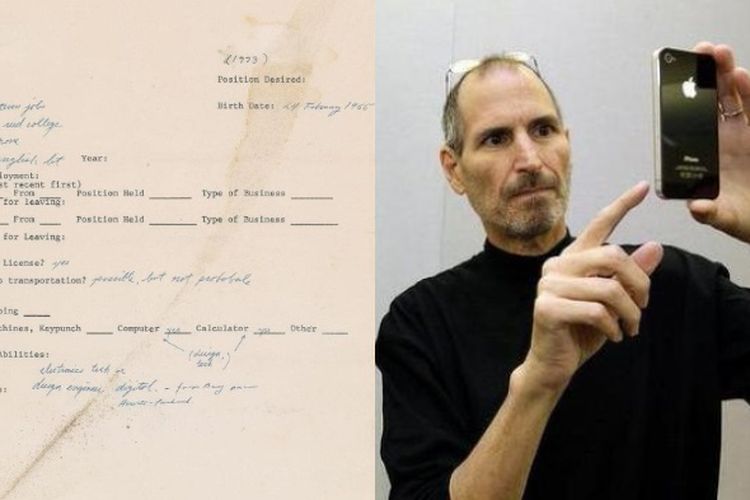 (1973)
Position Desired:
Birth Date: 24 February 1955
jobs
reed college
english, lit Year:
loyment:
st recent first)
From Position Held Type of Business
for leaving:
From Position Held Type of Business
for Leaving:
License? yes
transportation? possible, but not probable
ping
chines, Keypunch Computer yes Calculator yes Other
(design, tech)
Abilities:
electronics tech or
design engineer digital. - from Bay
Hewitt-Packard
iPhone